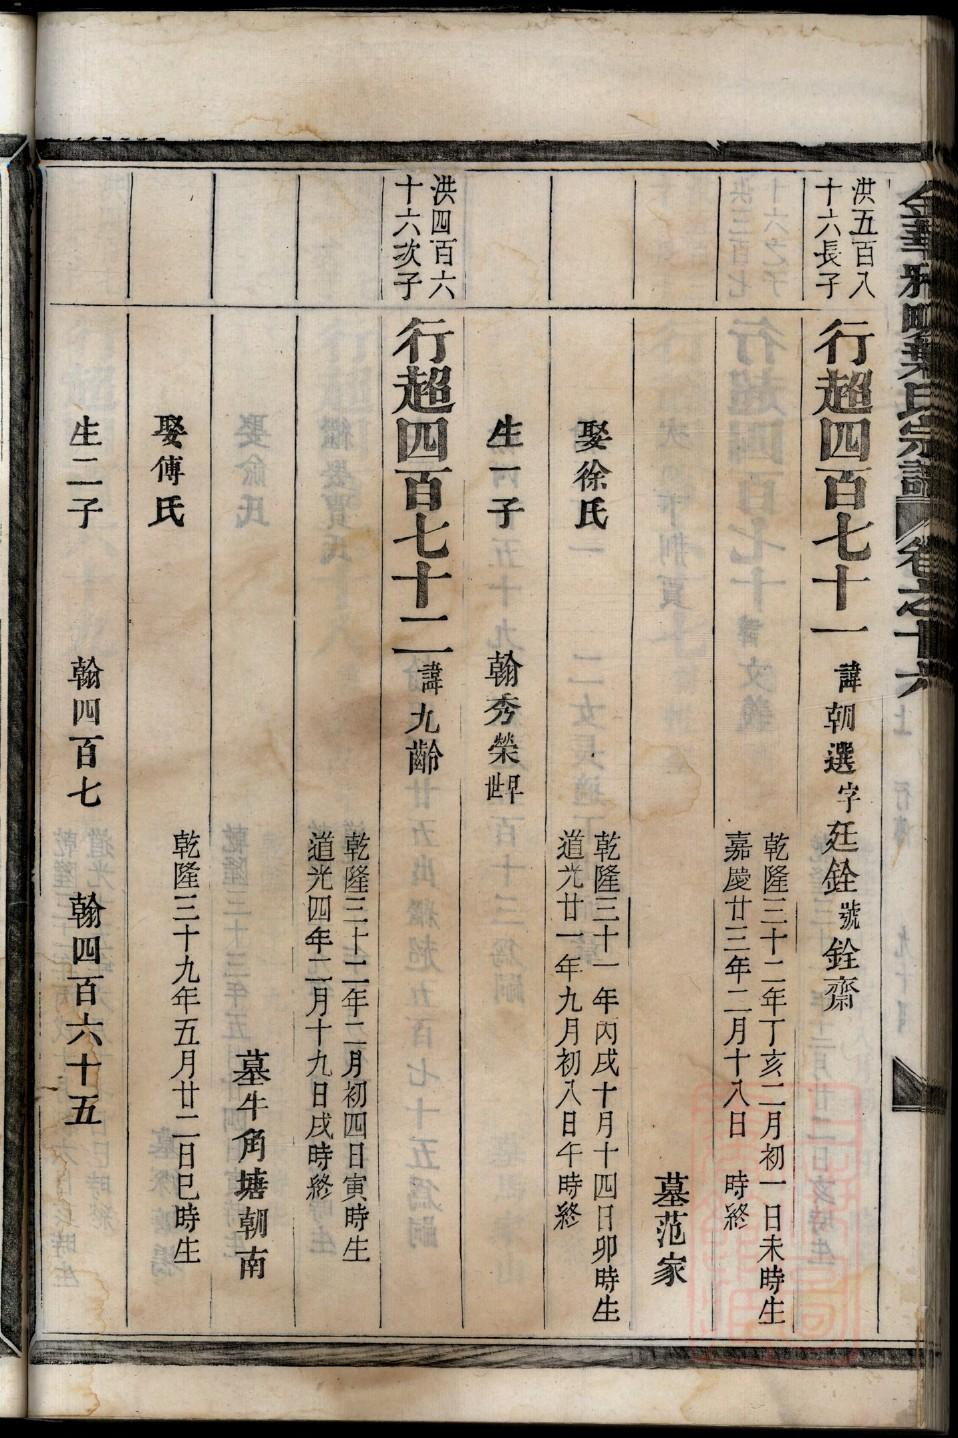 洪五百八
十六長子
行超四百七十一 諱朝選字廷銓號銓齋
乾隆三十二年丁亥二月初一日未時生
嘉慶廿三年二月十八日 時終
墓范家
娶徐氏
乾隆三十一年丙戌十月十四日卯時生
道光廿一年九月初八日午時終
生一子 翰秀榮
洪四百六
十六次子
行超四百七十二 諱九齡
乾隆三十二年二月初四日寅時生
道光四年二月十九日戌時終
墓牛角塘朝南
娶傅氏
乾隆三十九年五月廿二日巳時生
生二子 翰四百七 翰四百六十五